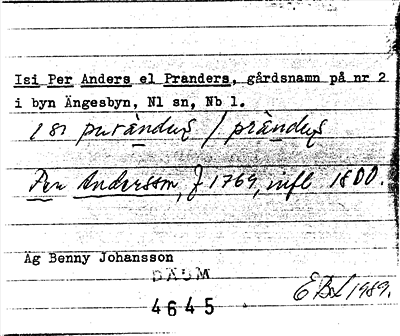 Isi Per Anders el Pranders, gårdsnamn på nr 2
i byn Ängesbyn, Nl sn, Nb l.
Per Andersson, f 1769, infl 1800.
Ag Benny Johansson
DAUM
4645
1989.